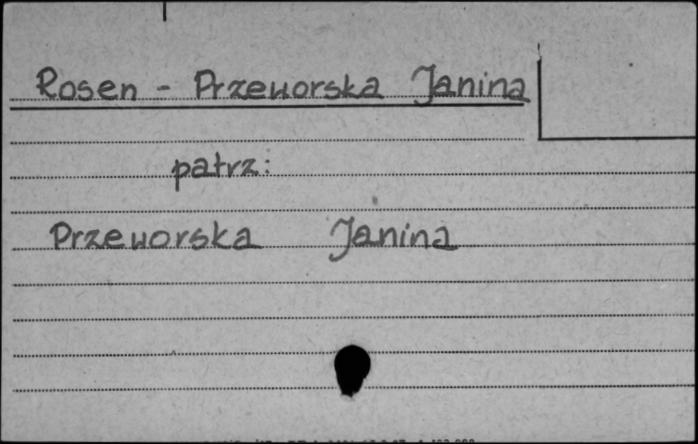 Rosen - Przeworska Janina
patrz:
Przeworska Janina